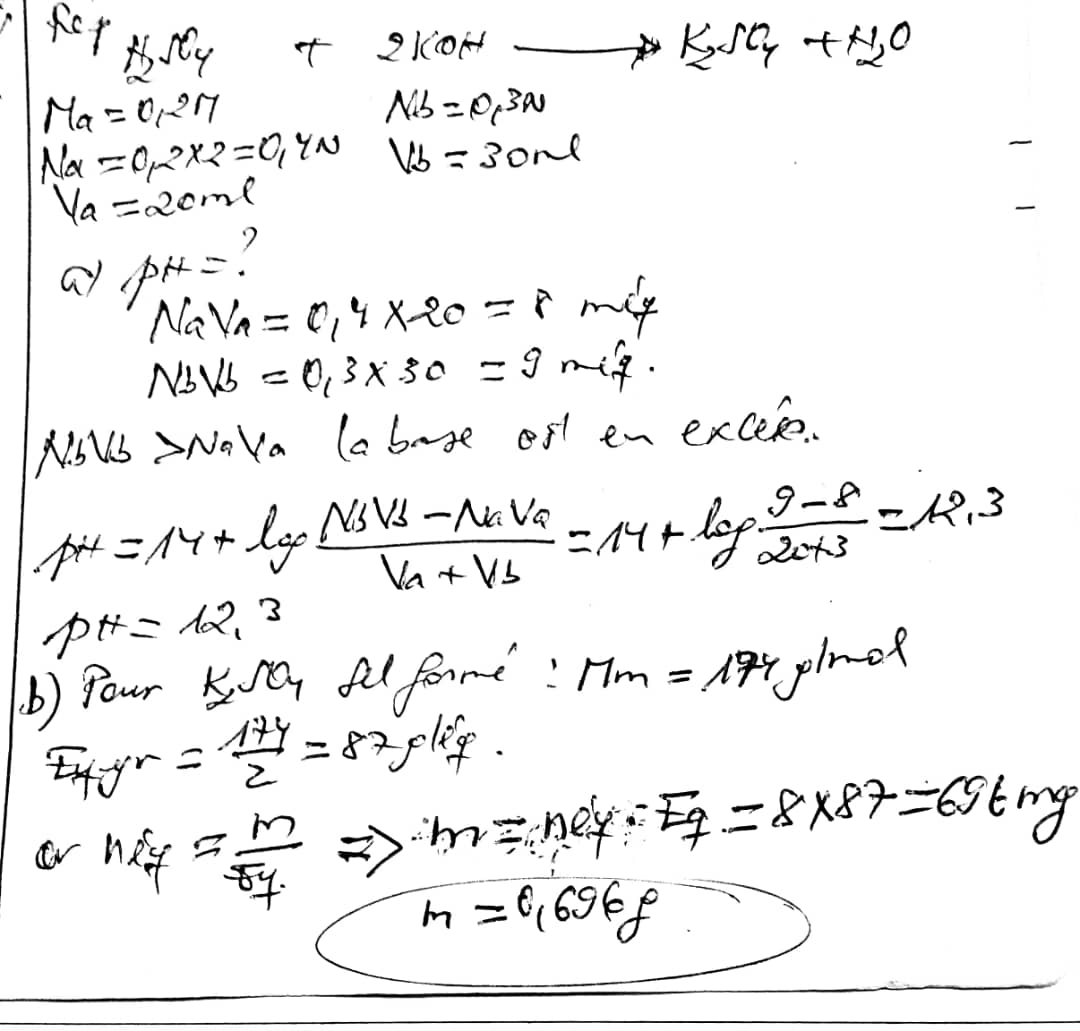 Rep H₂SO₄ + 2KOH → K₂SO₄ + H₂O
Ma = 0,2M Nb = 0,3N
Na = 0,2x2 = 0,4N Vb = 30ml
Va = 20ml
a) pH = ?
NaVa = 0,4 x 20 = 8 méq
NbVb = 0,3 x 30 = 9 méq.
NbVb > NaVa la base est en excès.
pH = 14 + log (NbVb - NaVa)/(Va + Vb) = 14 + log (9-8)/(20+3 = 12,3
pH = 12,3
b) Pour K₂SO₄ sel formé : Mm = 174 g/mol
Eqgr = 174/2 = 87g/éq.
or néq = m/Eq. => m = néq . Eq = 8x87 = 696 mg
m = 0,696g